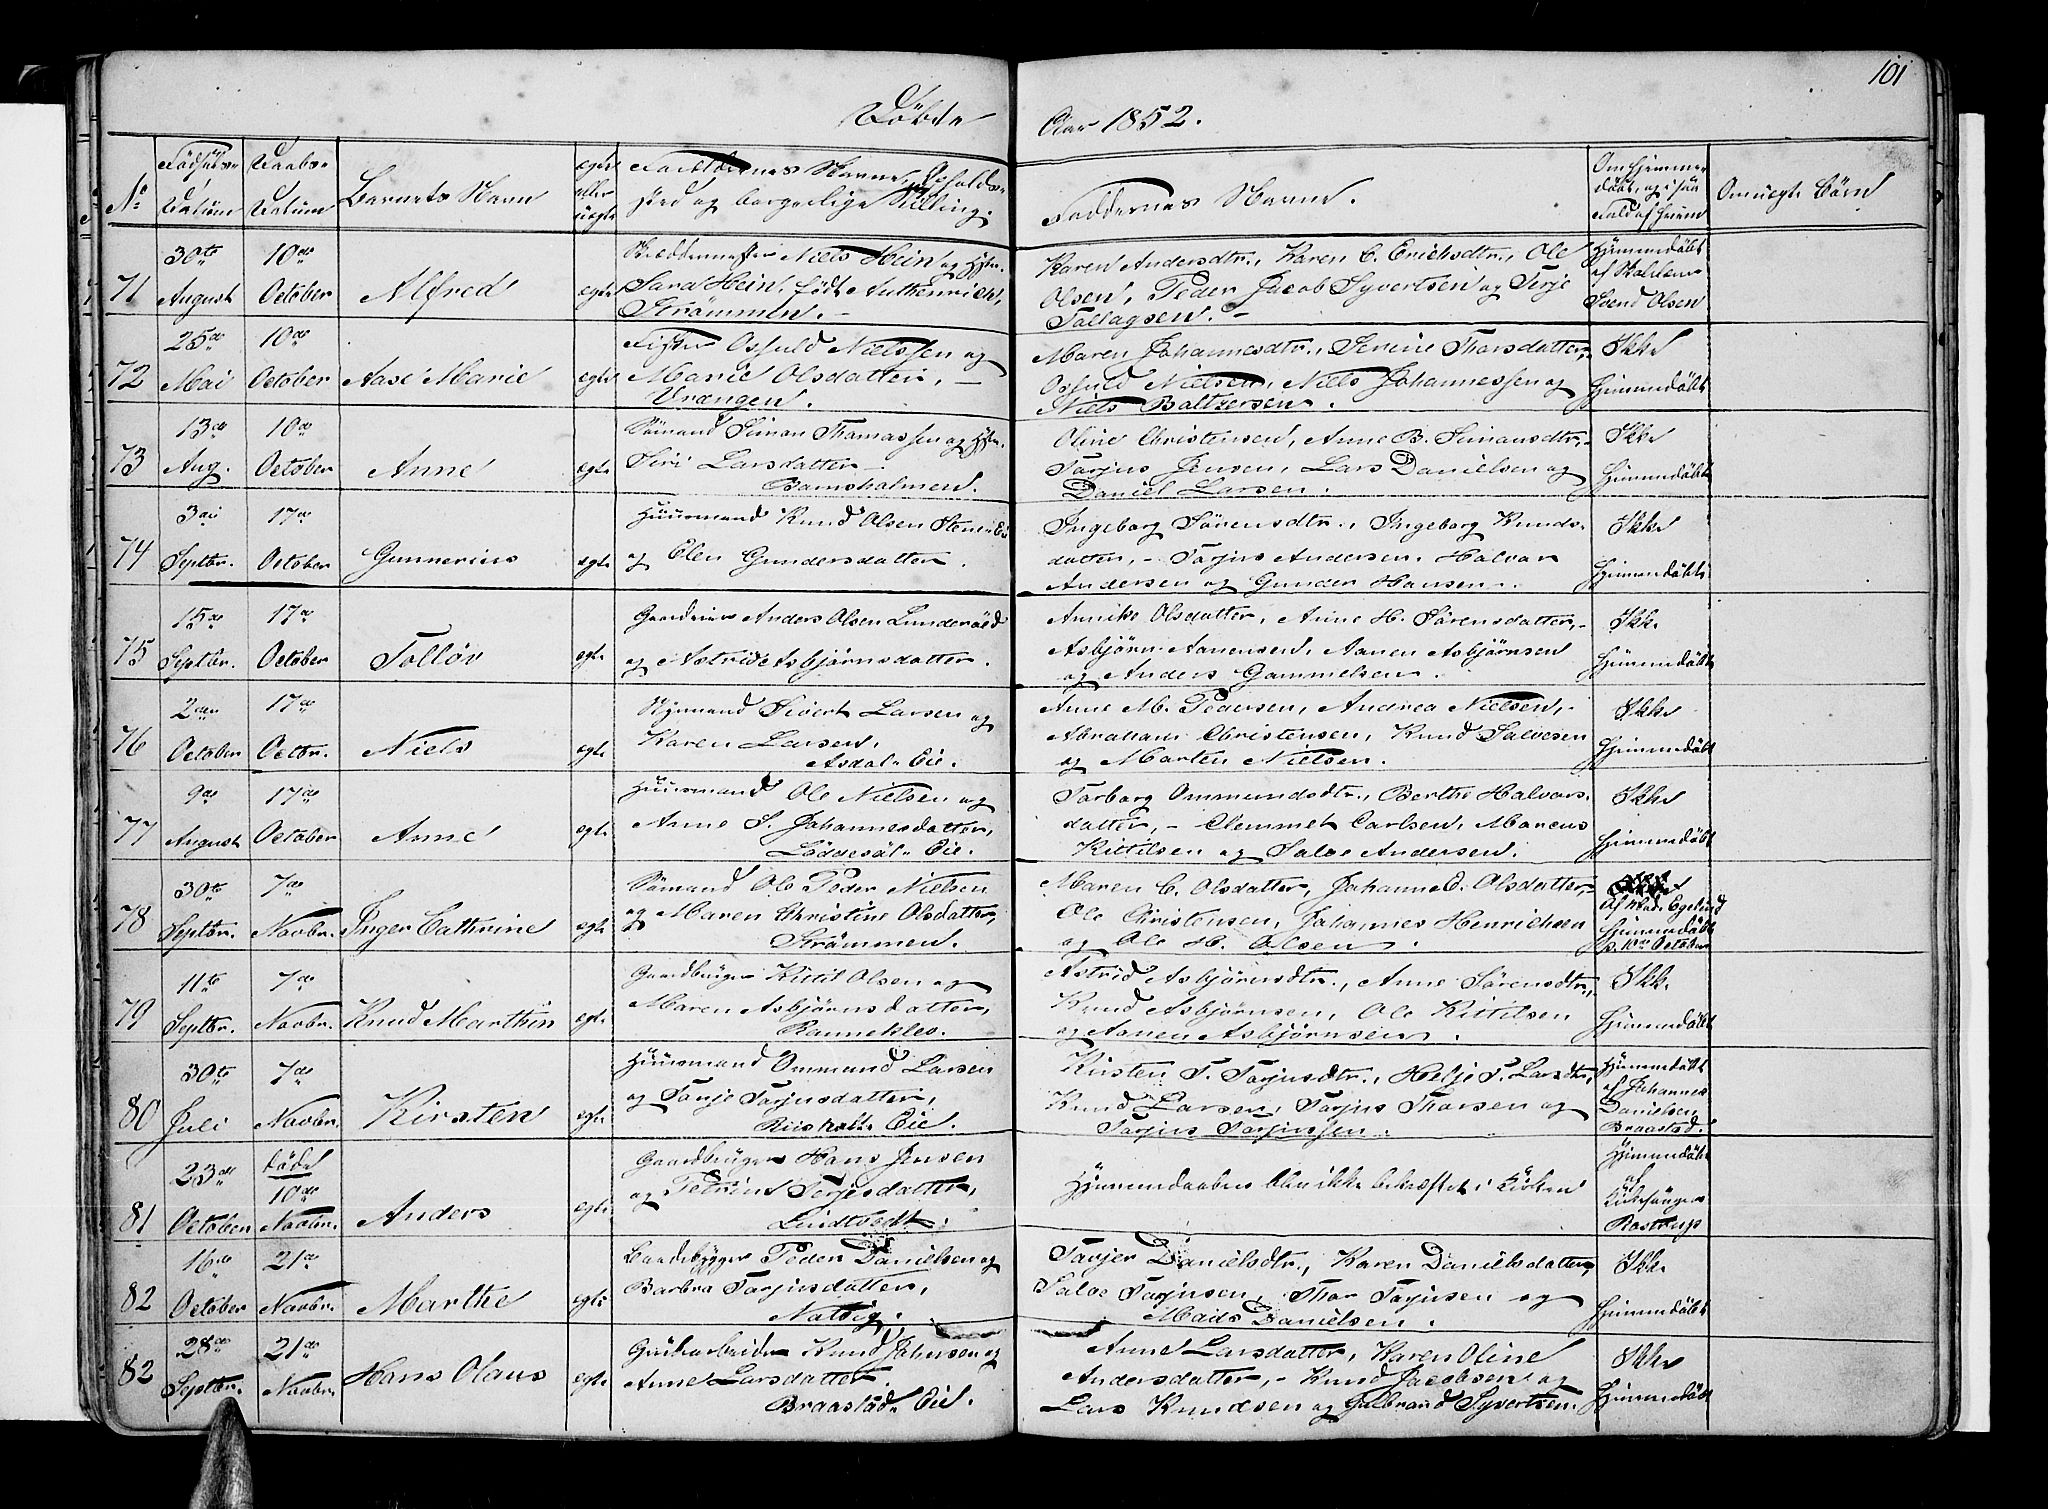 101
Döbte
Aar 1852.
No
Födsels-
Datum
Daabs-
Datum
Barnets Navn
egte
eller
uegte
Forældrenes Navne, Opholds-
sted og borgerlige Stilling.
Faddernes Navne.
Om hjemme-
döbt, og i saa
Fald af hvem
Om uegte Börn
71
30te
August
10de
October
Alfred
egte
Niels Hein og Hstr.
Sara Hein, födt Authenrich,
Strömmen. -
Karen Andersdtr., Karen C. Ericksdtr., Ole
Olsen, Peder Jacob Syvertsen og Terje
Tallagsen. -
Hjemmedöbt
af Skolelærer
Svend Olsen
72
25de
Mai
10de
October
Aase Marie
egte
Fisker Osfuld Nielssen og
Marie Olsdatter, -
Vrængen.
Maren Johannesdtr., Serine Thorsdatter,-
Osfuld Nielsen, Niels Johannessen og
Niels Baltzersen.
Ikke
hjemmedöbt
73
13de
Aug.
10de
October
Anne
egte
Sömand Simon Thomassen og Hstr.
Siri Larsdatter -
Ramsholmen.
Oline Christensen, Anne B. Simonsdtr,-
Tarjus Jensen, Lars Danielsen og
Daniel Larsen.
Ikke
hjemmedöbt
74
3die
Septbr.
17de
October
Gunnerius
egte
Huusmand Knud Olsen Stens Eie
og Elen Gundersdatter.
Ingeborg Sörensdtr., Ingeborg Knuds-
datter, - Tarjus Andersen, Halvor
Andersen og Gunder Hansen.
Ikke
hjemmedöbt
75
15de
Septbr.
17de
October
Tolløv
egte
Gaardmand Anders Olsen Lunderöd
og Astride Asbjörnsdatter.
Annike Olsdatter, Anne H. Sörensdatter,-
Asbjörn Aanensen, Aanen Asbjörnsen
og Anders Gammelsen.
Ikke
hjemmedöbt
76
2den
October
17de
Octbr.
Niels
egte
Nymand Sivert Larsen og
Karen Larsen,
Asdal- Eie.
Anne M. Pedersen, Andrea Nielsen,-
Abraham Christensen, Knud Salvesen
og Marten Nielsen.
Ikke
hjemmedöbt
77
9de
August
17de
October
Anne
egte
Huusmand Ole Nielsen og
Anne S. Johannesdatter,
Löddesöl- Eie.
Tarborg Ommundsdtr., Berthe Halvors-
datter, - Clemmet Carlsen, Marcus
Kittilsen og Salve Andersen.
Ikke
hjemmedöbt
78
30te
Septbr.
7de
Novbr.
Inger Cathrine
egte
Sömand Ole Peder Nielsen
og Maren Christine Olsdatter,
Strömmen.
Maren C. Olsdatter, Johanne O. Olsdatter,-
Ole Christensen, Johannes Henrichsen
og Ole H. Olsen.
Af Mad. Egelund
hjemmedöbt
p. 10de October
79
11te
Septbr.
7de
Novbr.
Knud Marthin
egte
Gaardbruger Kittil Olsen og
Maren Asbjörnsdatter,
Ranneklev.
Astrid Asbjörnsdtr., Anne Sörensdtr.,
Knud Asbjörnsen, Ole Kittilsen
og Aanen Asbjörnsen.
Ikke
hjemmedöbt
80
30te
Juli
7de
Novbr.
Kirsten
egte
Huusmand Ommund Larsen
og Tarje Tarjusdatter,
Riisholt- Eie.
Kirsten T. Tarjusdtr., Helje T. Larsdtr,
Knud Larsen, Tarjus Thorsen og
Tarjus Tarjussen.
Hjemmedöbt
af Johannes
Danielsen
Braastad.
81
23de
October
döde
10de
Novbr.
Anders
egte
Gaardbruger Hans Jensen
og Petrine Terjesdatter,
Lindtvedt.
Hjemmedaaben blev ikke bekræftet i Kirken
Hjemmedöbt
af
Kirkesanger
Rostrup
82
16te
October
21de
Novbr.
Marthe
egte
Baadebygger Peder Danielsen og
Barbra Tarjusdatter,
Natvig.
Tarjer Danielsdtr., Karen Danielsdatter,
Salve Tarjusen, Thor Tarjusen og
Mads Danielsen.
Ikke
hjemmedöbt
82
28de
Septbr.
21de
Novbr.
Hans Olaus
egte
Knud Johnsen og
Anne Larsdatter,
Braastad- Eie.
Anne Larsdatter, Karen Oline
Andersdatter, - Knud Jacobsen og
Lars Knudsen og Gulbrand Syvertsen.
Ikke
hjemmedöbt